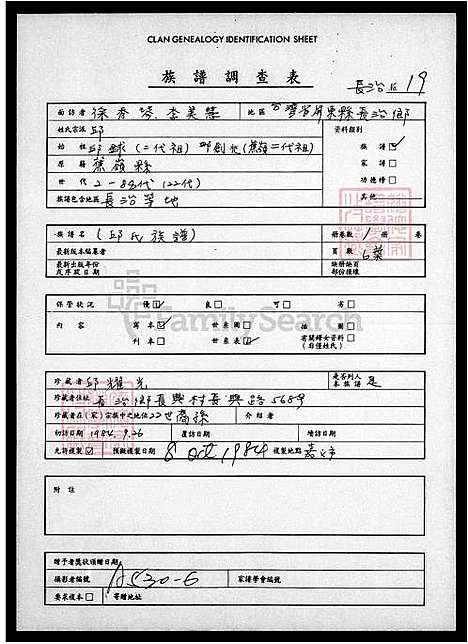 CLAN GENEALOGY IDENTIFICATION SHEET
族譜調查表
長治 19
面訪者 徐 李美慧 地區 台灣省屏東縣長治鄉
姓氏宗派 邱 資料類別
始祖 邱 (二代祖) (蕉嶺二代祖) 族譜☑
原籍 蕉嶺縣 家譜□
世代 2-23代 (22代) 功德榜□
族譜包含地區 長治等地 其他
族譜名 (邱氏族譜) 冊卷數 1 冊 卷
最新版本編纂者 頁數 葉
最新出版年份或序跋日期 缺冊缺頁部份種類
保管狀況 優☑ 良□ 可□ 劣□
內容 寫本☑ 世系圖□ 插圖□
刊本□ 世系表☑ 有關婦女資料□(非僅姓氏)
珍藏者 邱耀光 是否列入本族譜 是
珍藏者住址 長治鄉長興村長興路568号
珍藏者在(家)宗族中之地位 22世裔孫 介紹者
初訪日期 1984.9.26 覆訪日期 增訪日期
允許複製☑ 預擬複製日期 8 oct 1984 複製地點 嘉義市
附註
贈予者獎狀頒贈日期
攝影者編號 A530-6 家譜學會編號
要求複本□ 寄贈地址
FamilySearch